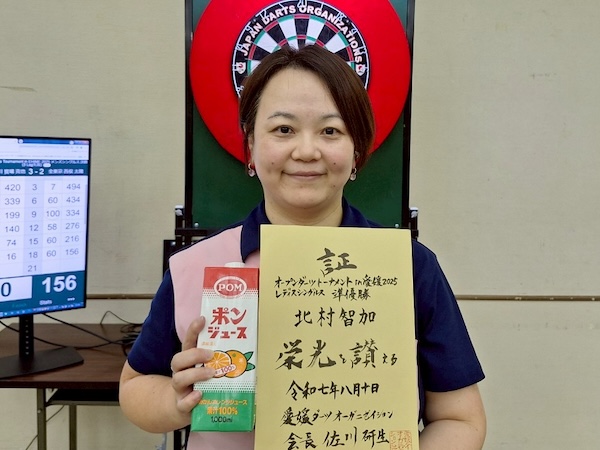 JAPAN DARTS ORGANIZATIONS
3 - 2
420 3 7 494
339 6 60 434
199 9 100 334
140 12 58 276
74 15 60 216
16 18 60 156
21
0 156
POM
ポン
ジュース
果汁100%
1,000ml
証
オープンダーツトーナメント in 愛媛2025
レディスシングルス 準優勝
北村智加
栄光を讃える
令和七年八月十日
愛媛ダーツオーガニゼイション
会長 佐川研生